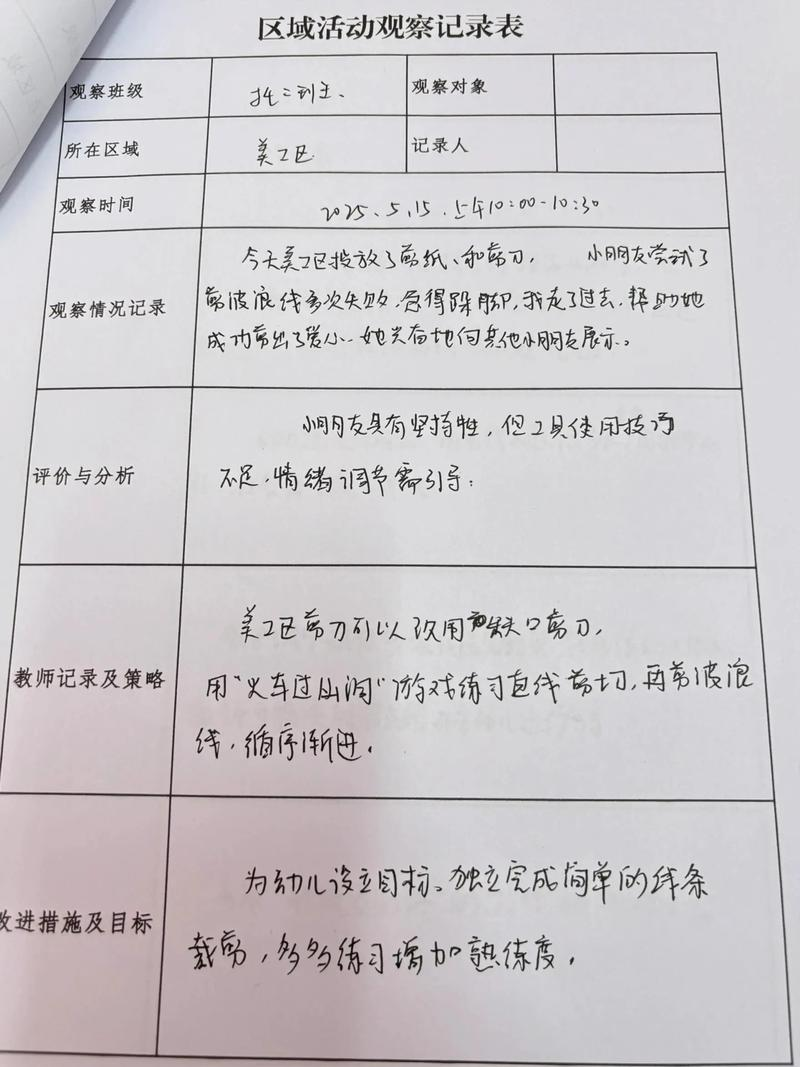 区域活动观察记录表
观察班级 托二班 观察对象
所在区域 美工区 记录人
观察时间 2025.5.15.上午10:00-10:30
今天美工区投放了剪纸、和剪刀, 小朋友尝试了
观察情况记录 剪波浪线多次失败,急得跺脚,我走了过去,帮助她
成功剪出了爱心、她兴奋地向其他小朋友展示。
小朋友具有坚持性,但工具使用技巧
评价与分析 不足,情绪调节需引导;
美工区剪刀可以改用缺口剪刀,
教师记录及策略 用"火车过山洞"游戏练习直线剪切,再剪波浪
线,循序渐进。
为幼儿设立目标、独立完成简单的线条
改进措施及目标 裁剪,多多练习增加熟练度。